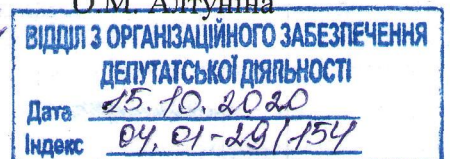 О.М. Алтуніна
ВІДДІЛ З ОРГАНІЗАЦІЙНОГО ЗАБЕЗПЕЧЕННЯ
ДЕПУТАТСЬКОЇ ДІЯЛЬНОСТІ
Дата 15.10.2020
Індекс 04.01-29/154